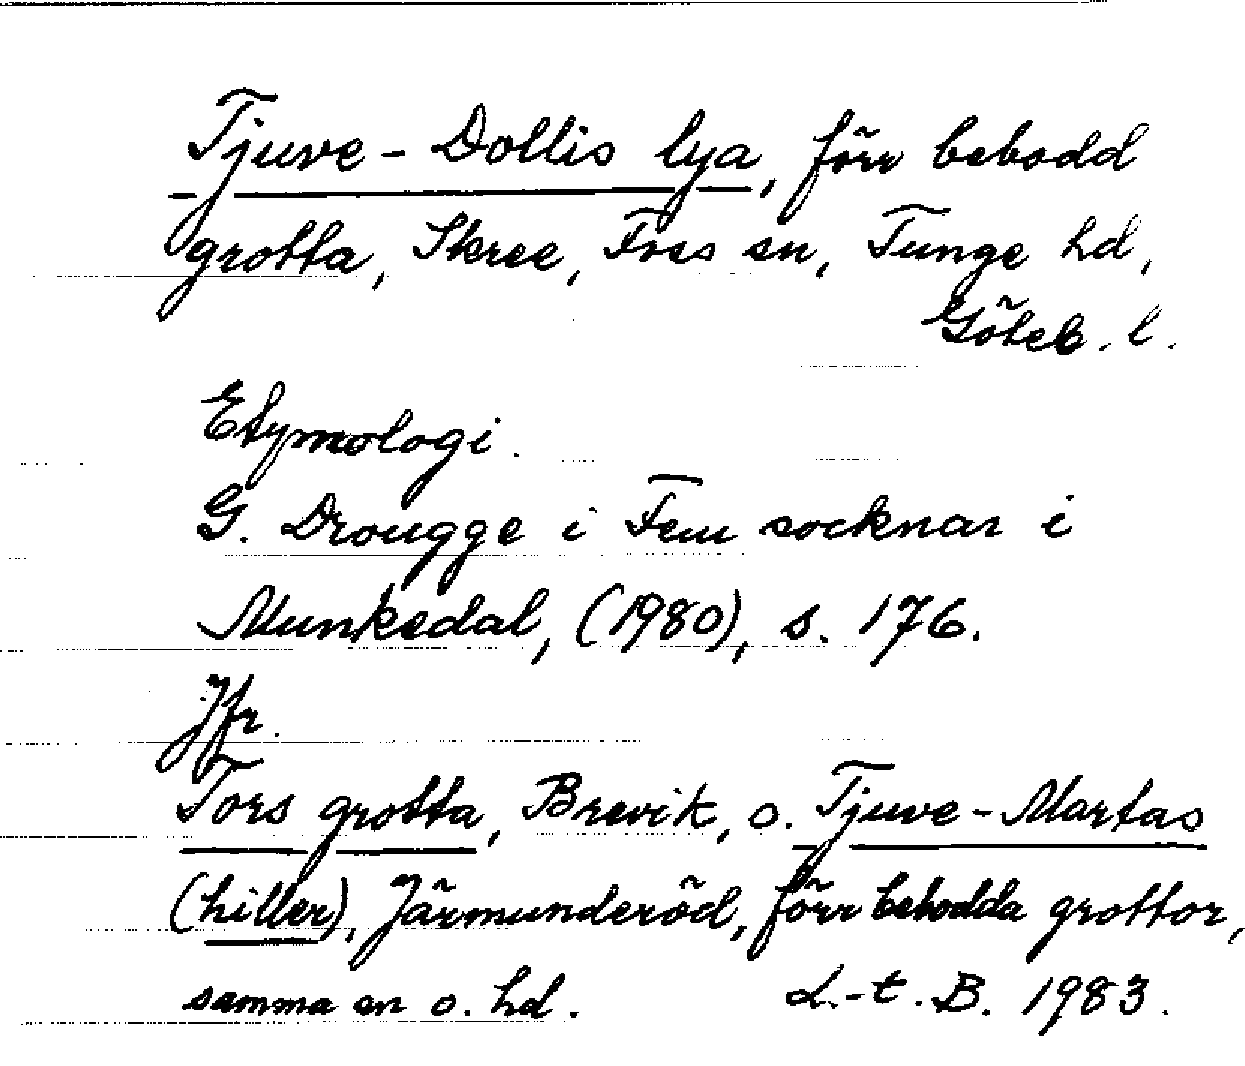 Tjuve-Dollis lya, förr bebodd
grotta, Skree, Foss sn, Tunge hd,
Göteb. l.
Etymologi.
G. Drougge i Fem socknar i
Munkedal, (1980), s. 176.
Jfr.
Tors grotta, Brevik, o. Tjuve-Martas
(hiller), Järmunderöd, förr bebodda grottor,
samma sn o. hd. L.-t. B. 1983.